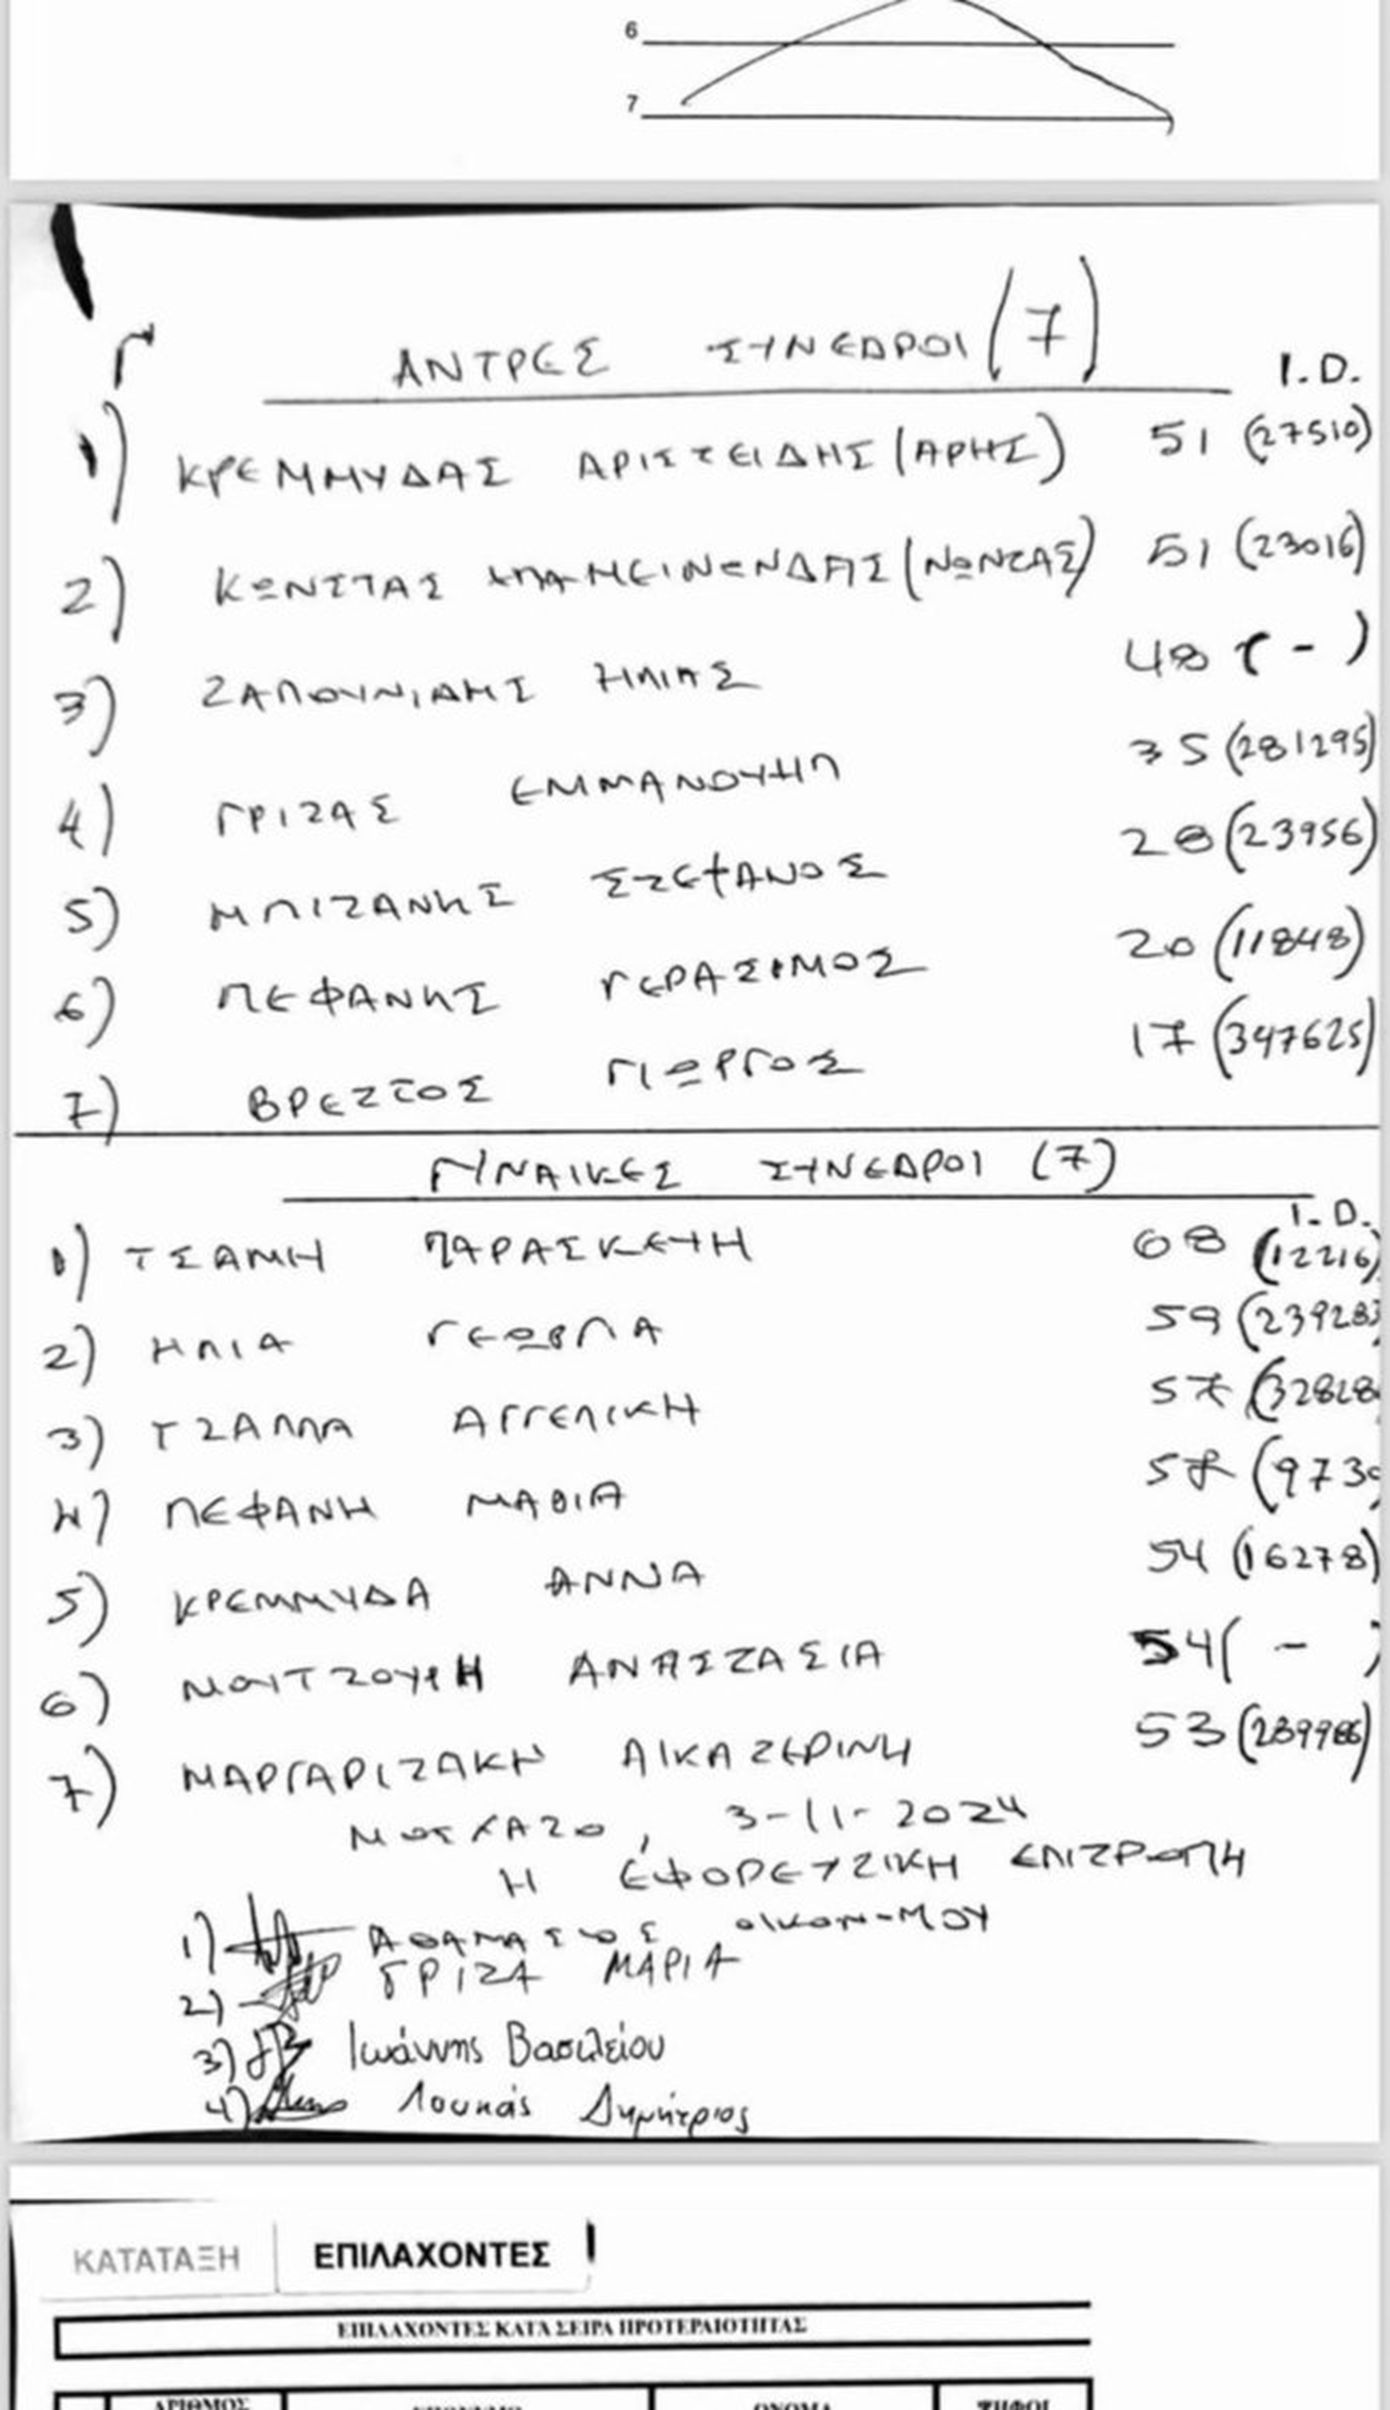 6
7
Γ
ΑΝΤΡΕΣ ΣΥΝΕΔΡΟΙ (7)
I.D.
1) ΚΡΕΜΜΥΔΑΣ ΑΡΙΣΤΕΙΔΗΣ (ΑΡΗΣ) 51 (27510)
2) ΚΩΝΣΤΑΣ (ΝΩΝΤΑΣ) 51 (23016)
3) ΖΑΠΟΥΝΙΔΗΣ ΗΛΙΑΣ 48 ( - )
4) ΓΡΙΖΑΣ ΕΜΜΑΝΟΥΗΛ 35 (281295)
5) ΜΠΙΖΑΝΗΣ ΣΤΕΦΑΝΟΣ 28 (23956)
6) ΠΕΦΑΝΗΣ ΓΕΡΑΣΙΜΟΣ 20 (11848)
7) ΒΡΕΤΤΟΣ ΓΙΩΡΓΟΣ 17 (347625)
ΓΥΝΑΙΚΕΣ ΣΥΝΕΔΡΟΙ (7)
I.D.
1) ΤΣΑΜΗ ΠΑΡΑΣΚΕΥΗ 68 (12216)
2) ΗΛΙΑ 59 (239283
3) ΤΖΑΛΛΑ ΑΓΓΕΛΙΚΗ 57 (32828
4) ΠΕΦΑΝΗ ΜΑΘΙΑ (973
5) ΚΡΕΜΜΥΔΑ ΑΝΝΑ 54 (16278)
6) ΑΝΑΣΤΑΣΙΑ 54 ( - )
7) ΜΑΡΓΑΡΙΤΑΚΗ ΑΙΚΑΤΕΡΙΝΗ 53 (239986)
ΜΟΣΧΑΤΟ, 3-11-2024
Η ΕΦΟΡΕΥΤΙΚΗ ΕΠΙΤΡΟΠΗ
1) ΑΘΑΝΑΣΙΟΣ
2) ΓΡΙΖΑ ΜΑΡΙΑ
3) Ιωάννης Βασιλείου
4) Λουκάς Δημήτριος
ΚΑΤΑΤΑΞΗ ΕΠΙΛΑΧΟΝΤΕΣ
ΕΠΙΛΑΧΟΝΤΕΣ ΚΑΤΑ ΣΕΙΡΑ ΠΡΟΤΕΡΑΙΟΤΗΤΑΣ
ΑΡΙΘΜΟΣ ΕΠΩΝΥΜΟ ΟΝΟΜΑ ΨΗΦΟΙ